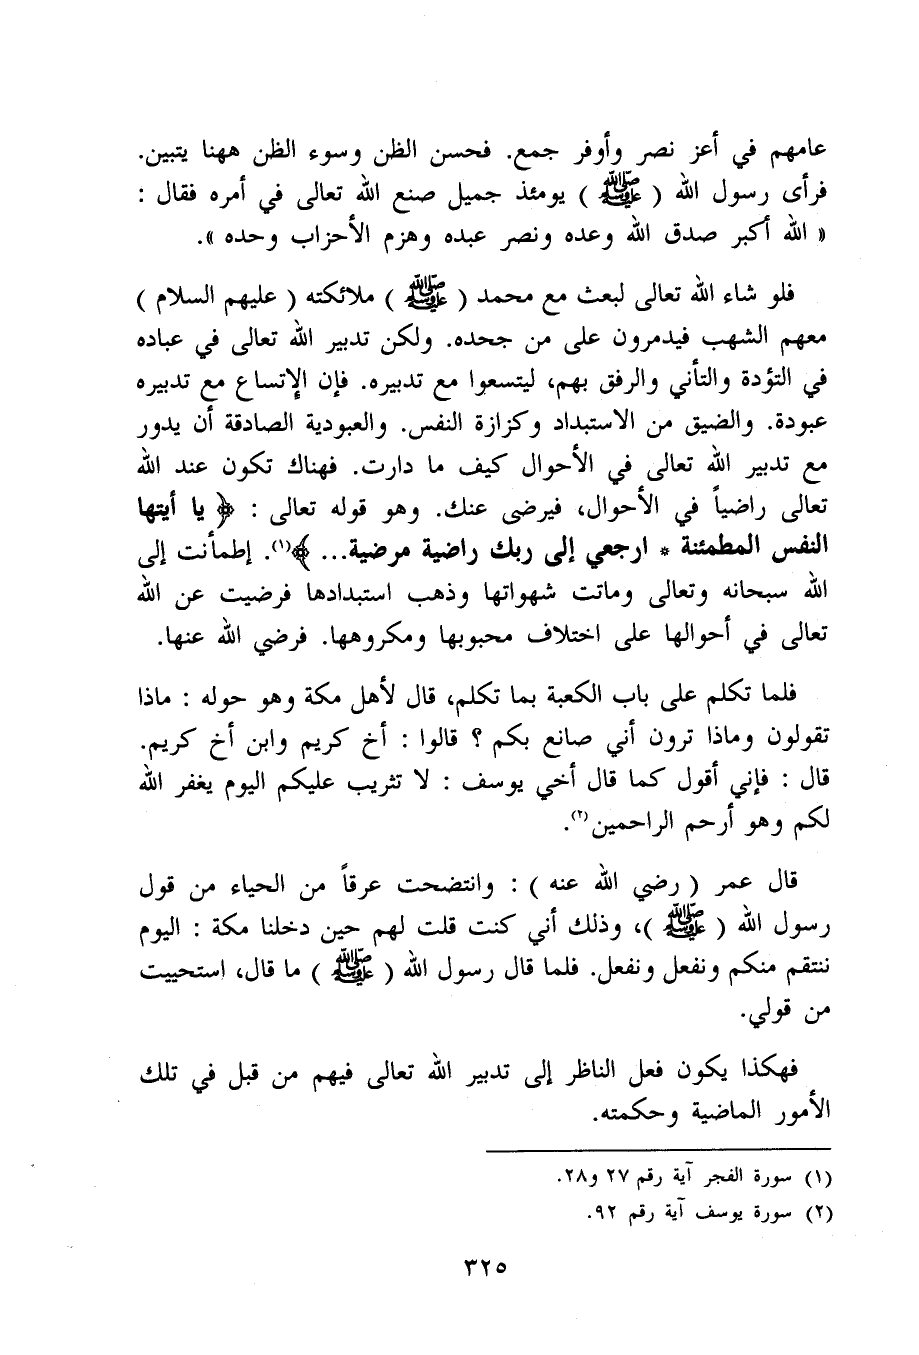 عامهم في أعز نصر وأوفر جمع. فحسن الظن وسوء الظن ههنا يتبين.
فرأى رسول الله ( ﷺ ) يومئذ جميل صنع الله تعالى في أمره فقال :
« الله أكبر صدق الله وعده ونصر عبده وهزم الأحزاب وحده ».
فلو شاء الله تعالى لبعث مع محمد ( ﷺ ) ملائكته ( عليهم السلام )
معهم الشهب فيدمرون على من جحده. ولكن تدبير الله تعالى في عباده
في التؤدة والتأني والرفق بهم، ليتسعوا مع تدبيره. فإن الإتساع مع تدبيره
عبودة. والضيق من الاستبداد وكزازة النفس. والعبودية الصادقة أن يدور
مع تدبير الله تعالى في الأحوال كيف ما دارت. فهناك تكون عند الله
تعالى راضياً في الأحوال، فيرضى عنك. وهو قوله تعالى : ﴿ يا أيتها
النفس المطمئنة * ارجعي إلى ربك راضية مرضية... ﴾(١). إطمأنت إلى
الله سبحانه وتعالى وماتت شهواتها وذهب استبدادها فرضيت عن الله
تعالى في أحوالها على اختلاف محبوبها ومكروهها. فرضي الله عنها.
فلما تكلم على باب الكعبة بما تكلم، قال لأهل مكة وهو حوله : ماذا
تقولون وماذا ترون أني صانع بكم ؟ قالوا : أخ كريم وابن أخ كريم.
قال : فإني أقول كما قال أخي يوسف : لا تثريب عليكم اليوم يغفر الله
لكم وهو أرحم الراحمين(٢).
قال عمر ( رضي الله عنه ) : وانتضحت عرقاً من الحياء من قول
رسول الله ( ﷺ )، وذلك أني كنت قلت لهم حين دخلنا مكة : اليوم
ننتقم منكم ونفعل ونفعل. فلما قال رسول الله ( ﷺ ) ما قال، استحييت
من قولي.
فهكذا يكون فعل الناظر إلى تدبير الله تعالى فيهم من قبل في تلك
الأمور الماضية وحكمته.
(١) سورة الفجر آية رقم ٢٧ و٢٨.
(٢) سورة يوسف آية رقم ٩٢.
٣٢٥